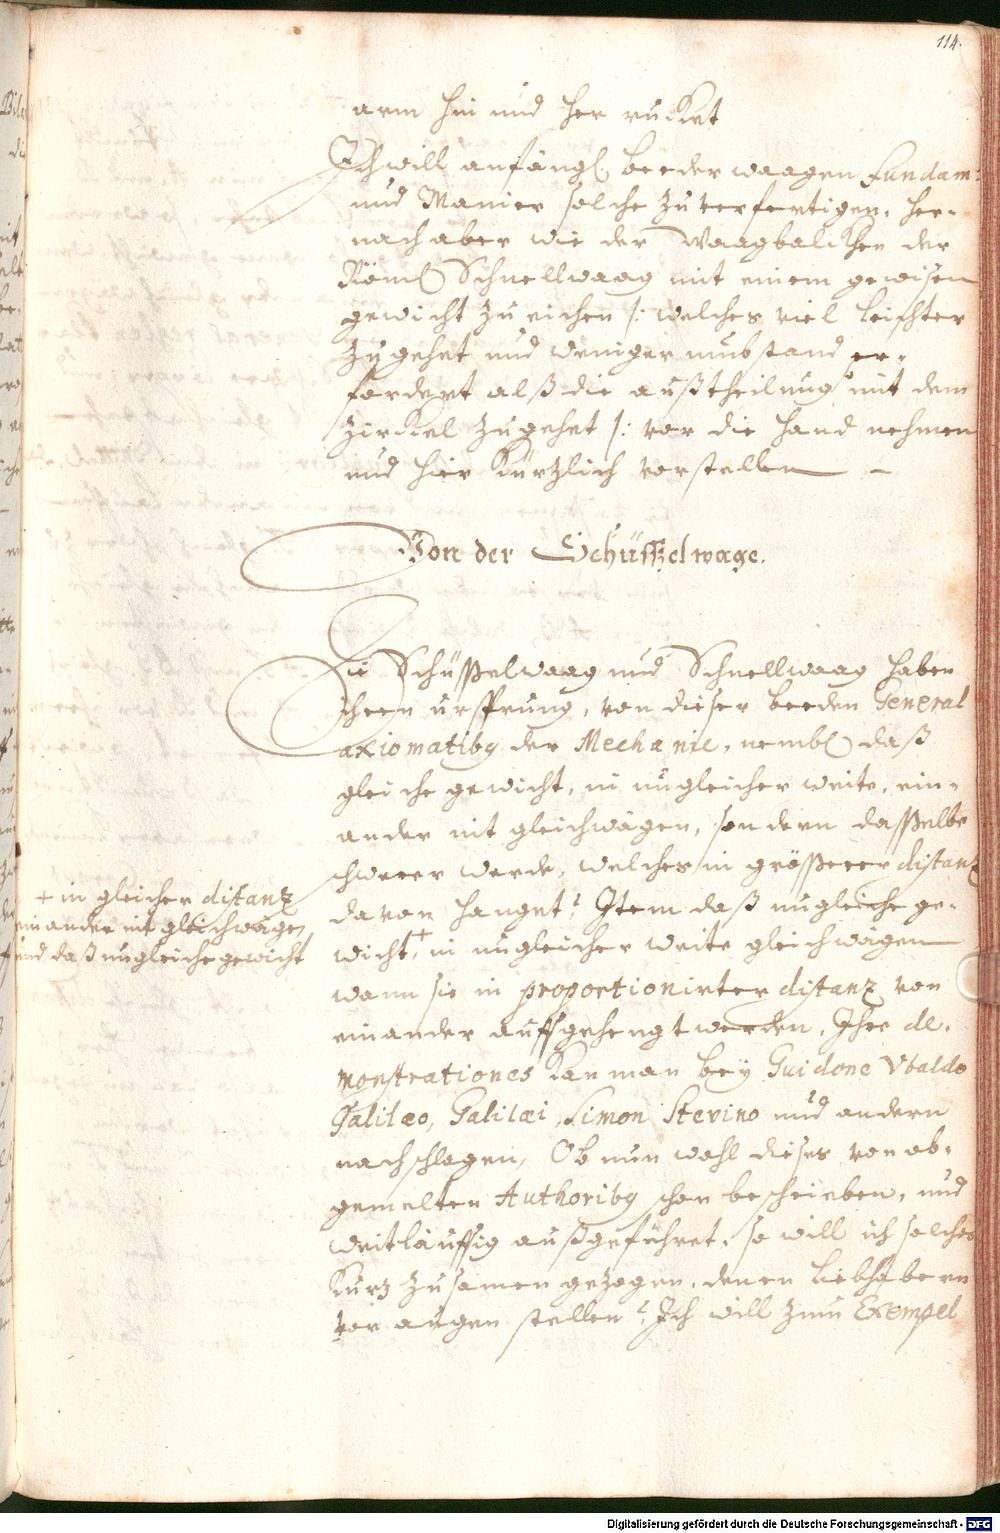 114.
arm hin und her rucket
Ich will anfängl. beeder waagen Fundam:
und Manier solche zuverfertigen, her-
nach aber wie der Waagbalcken der
Röml. Schnellwaag mit einem gewisen
gewicht zu eichen /: welches viel leichter
zugehet und weniger umbstand er-
fordert alß die außtheilung mit dem
Zirckel zugehet /: vor die hand nehmen
und hier kürtzlich vorstellen –
Von der Schüsselwage.
Die Schüsselwaag und Schnellwaag haben
iheen ursprung, von dieser beeden General
axiomatibus der Mechanic, nembl. daß
gleiche gewicht, in ungleicher weite, ein-
ander nit gleichwägen, sondern dasselbe
schweer werde, welches in grösserer distanz
davon hanget? Item daß ungleiche ge-
wicht, + in ungleicher weite gleichwägen
+ in gleicher distanz
einander nit gleichwägen,
und daß ungleiche gewicht
wann sie in proportionirter distanz von
einander auffgehengt werden. Ihre de-
monstrationes kan man bey Guidone Vbaldo
Galilæo, Galilæi, Simon Stevino und andern
nachschlagen, Ob nun wohl dieses von ob-
gemelten Authoribus schon beschrieben, und
weitläuffig außgeführet, so will ich solches
kurz zusamen gezogen, denen liebhabern
vor augen stellen? Ich will zum Exempel
Digitalisierung gefördert durch die Deutsche Forschungsgemeinschaft - DFG